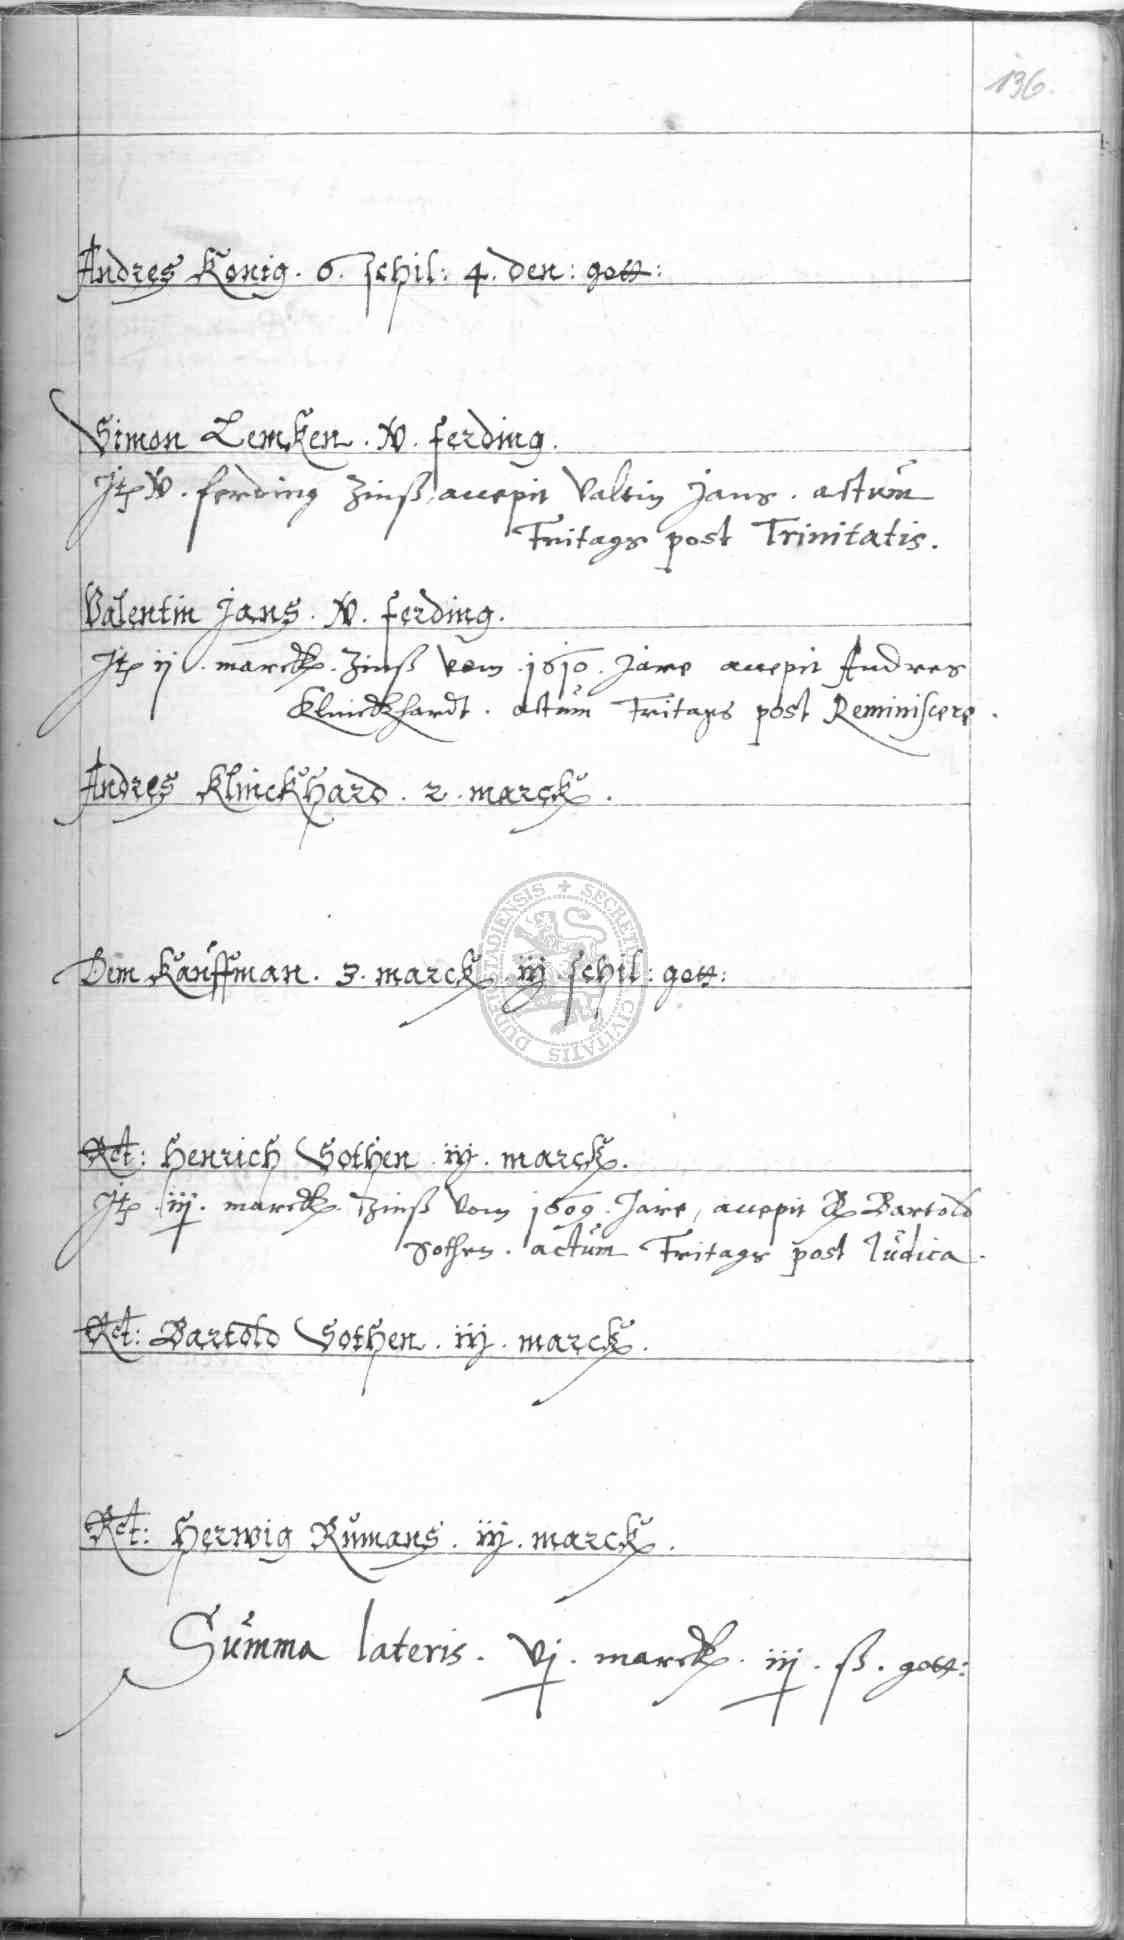 136.
Andres Konig. 6. schil: 4. den: gott:
Simon Lemken. N. ferding.
Jtp N. ferding Zinß accepit Valtin Jans. actum
Fritags post Trinitatis.
Valentin Jans. N. ferding.
Jtp ij. marck. Zinß vom .1610. Jare accepit Andres
Klinckhardt. actum Fritags post Reminiscere.
Andres Klinckhard. 2. marck.
Dem Kauffman. 3. marck iij schil: gott:
Rct: Henrich Sothen iij. marck.
Jtp .iij. marck. Zinß vom 1609. Jare, accepit R Bartold
Sothen. actum Fritags post Iudica.
Rct: Bartold Sothen. iij. marck.
Rct: Herwig Rumans. iij. marck.
Summa lateris. vj. marck. iij. ß. gott:
SECRETU CIVITATIS DUDERSTADIENSIS